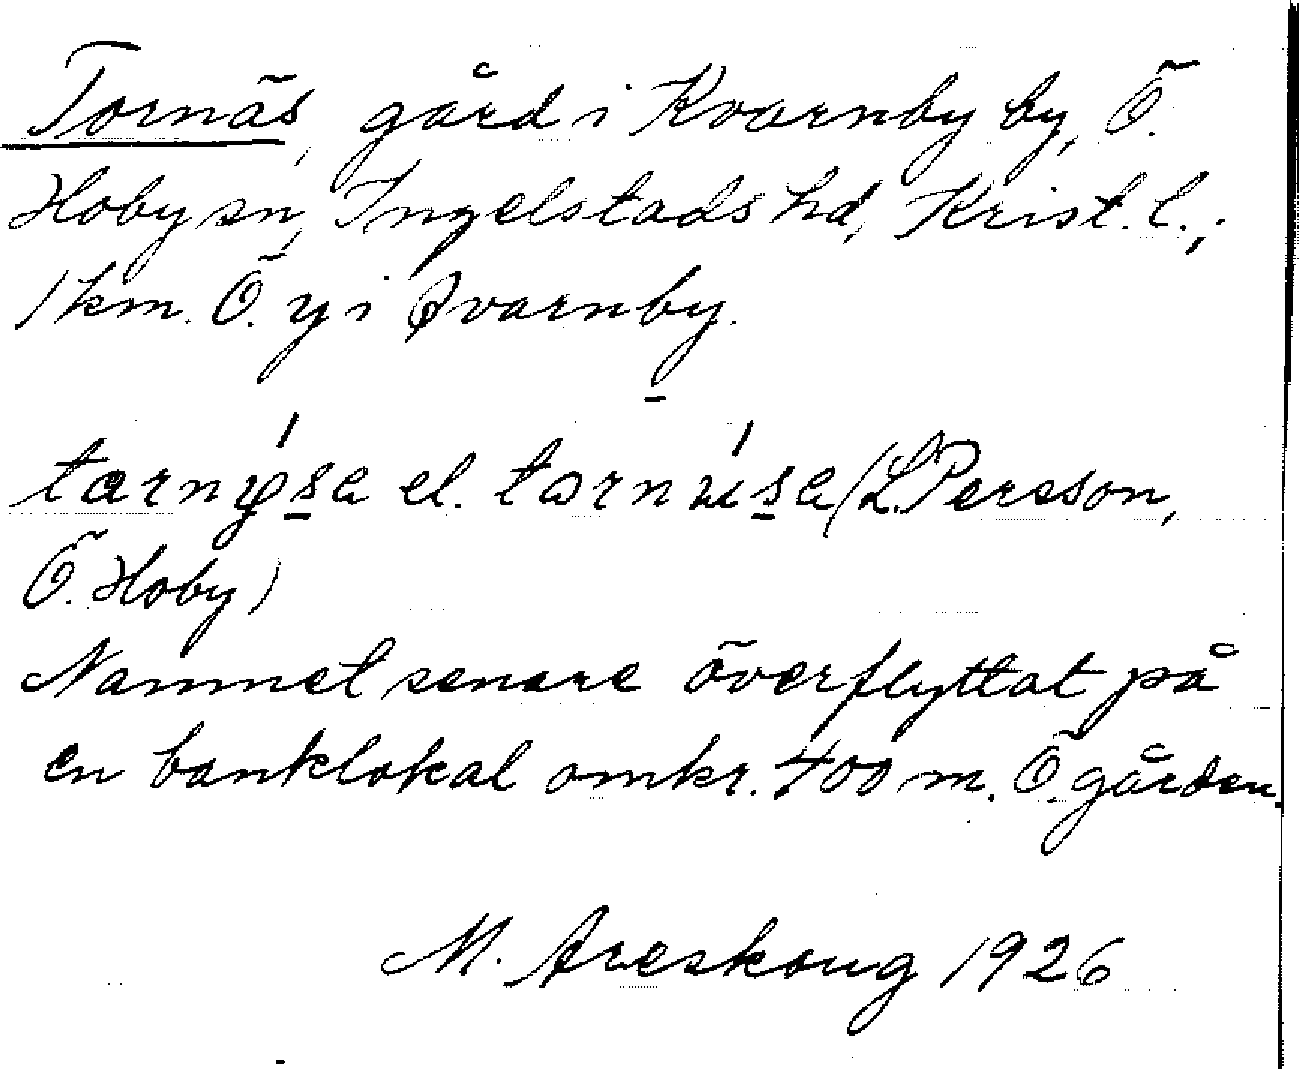 Tornäs, gård i Kvarnby by, Ö.
Hoby sn, Ingelstads hd, Krist. l.,
1 km. Ö. y i Qvarnby.
el. (L. Persson,
Ö. Hoby)
Namnet senare överflyttat på
en banklokal omkr. 400 m. Ö. gården.
M. Areskoug 1926